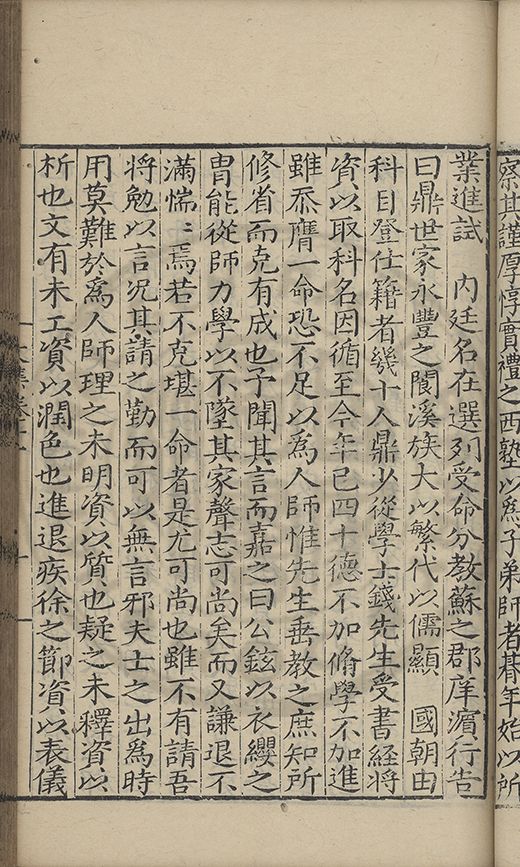 察其謹厚惇實禮之西塾以爲子弟師者朞年始以所
業進試　内廷名在選列受命分教蘇之郡庠瀕行告
曰鼎世家永豐之閬溪族大以繁代以儒顯　國朝由
科目登仕籍者幾十人鼎少從學士錢先生受書經將
資以取科名因循至今年已四十德不加脩學不加進
雖忝膺一命恐不足以為人師惟先生垂教之庶知所
修省而克有成也予聞其言而嘉之曰公鉉以衣纓之
胄能從師力學以不墜其家聲志可尚矣而又謙退不
滿惴〻焉若不克堪一命者是尤可尚也雖不有請吾
將勉以言况其請之勤而可以無言邪夫士之出爲時
用莫難於爲人師理之未明資以質也疑之未釋資以
析也文有未工資以潤色也進退疾徐之節資以表儀